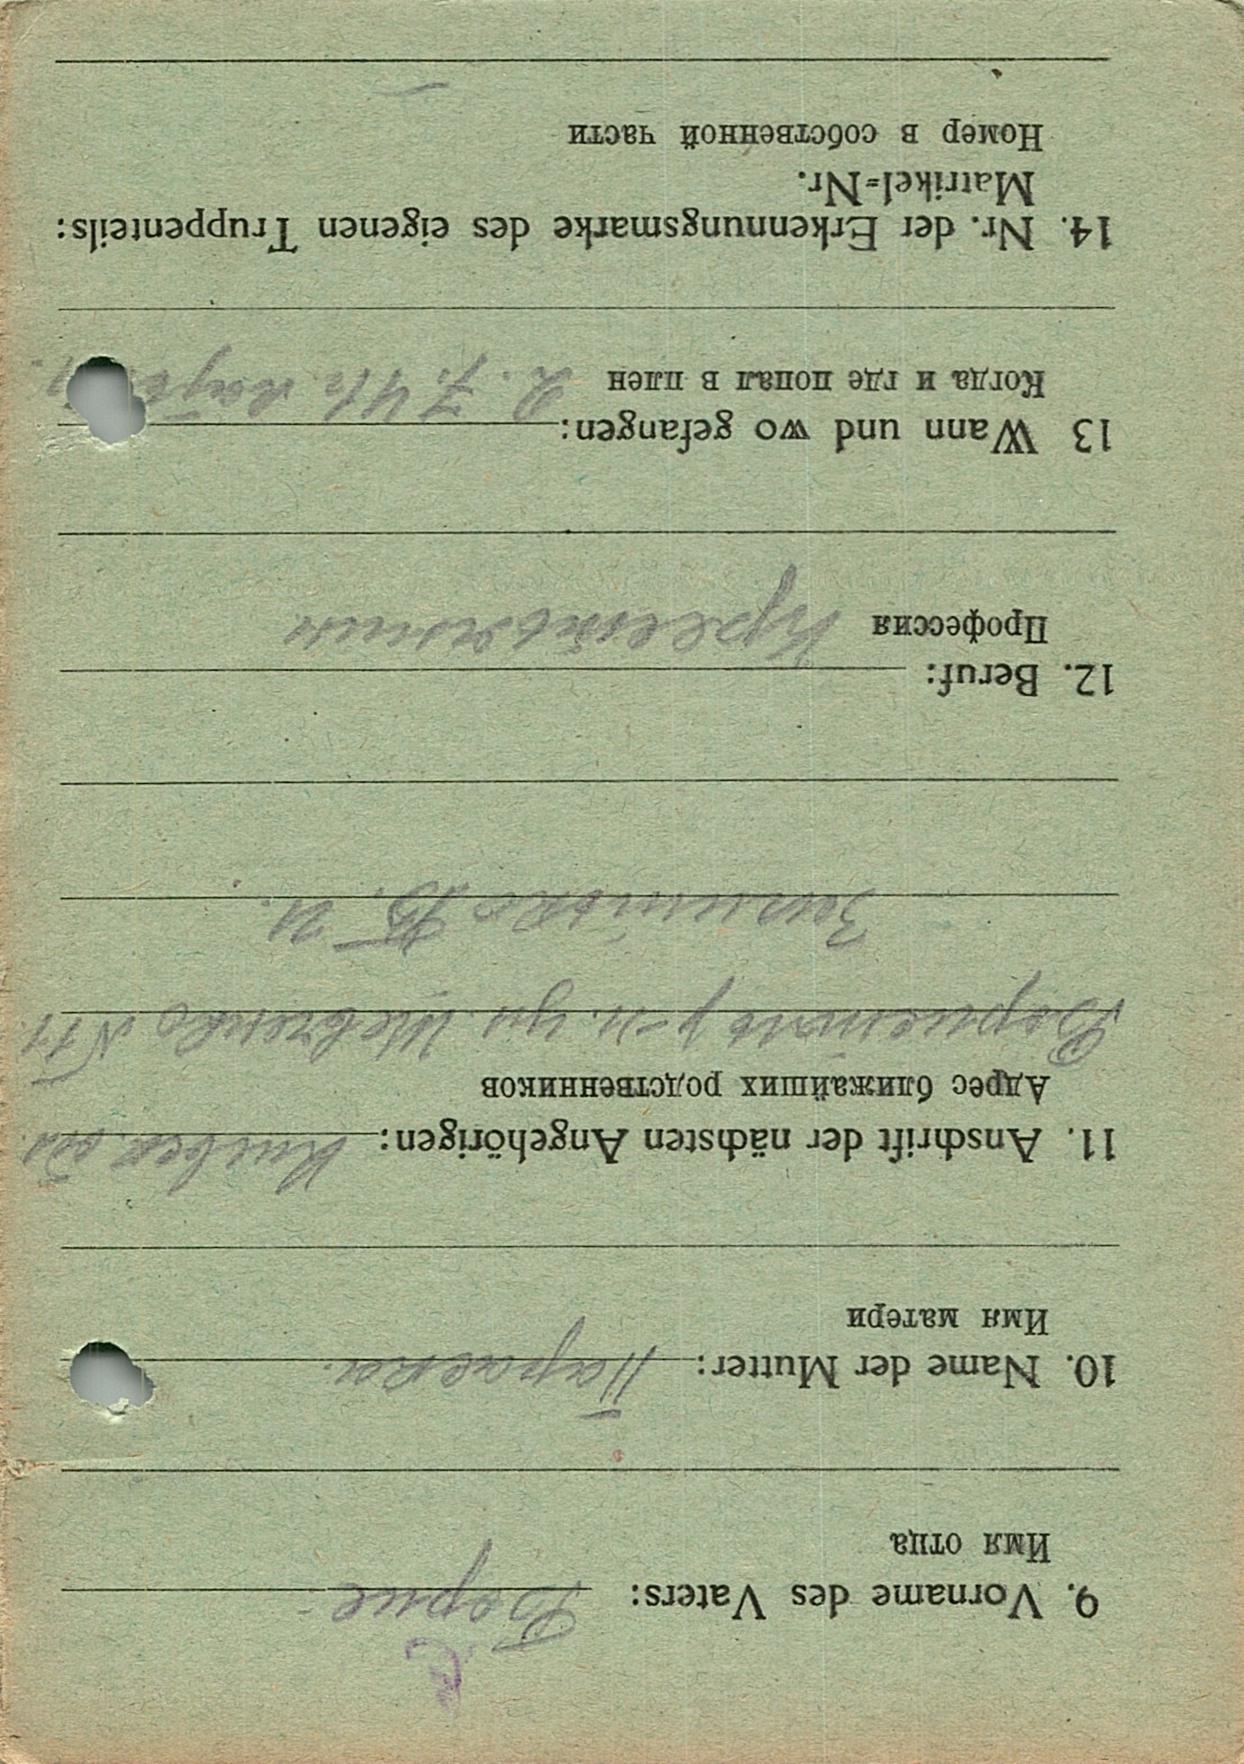 9. Vorname des Vaters: Борис
Имя отца
10. Name der Mutter: Параска
Имя матери
11. Anschrift der nächsten Angehörigen: Киевск. обл.
Адрес ближайших родственников
р-н. ул. Шевченко N 11
12. Beruf:
Профессия Крестьянин
13 Wann und wo gefangen:
Когда и где попал в плен 2. 7. 41
14. Nr. der Erkennungsmarke des eigenen Truppenteils:
Matrikel=Nr.
Номер в собственной части
—